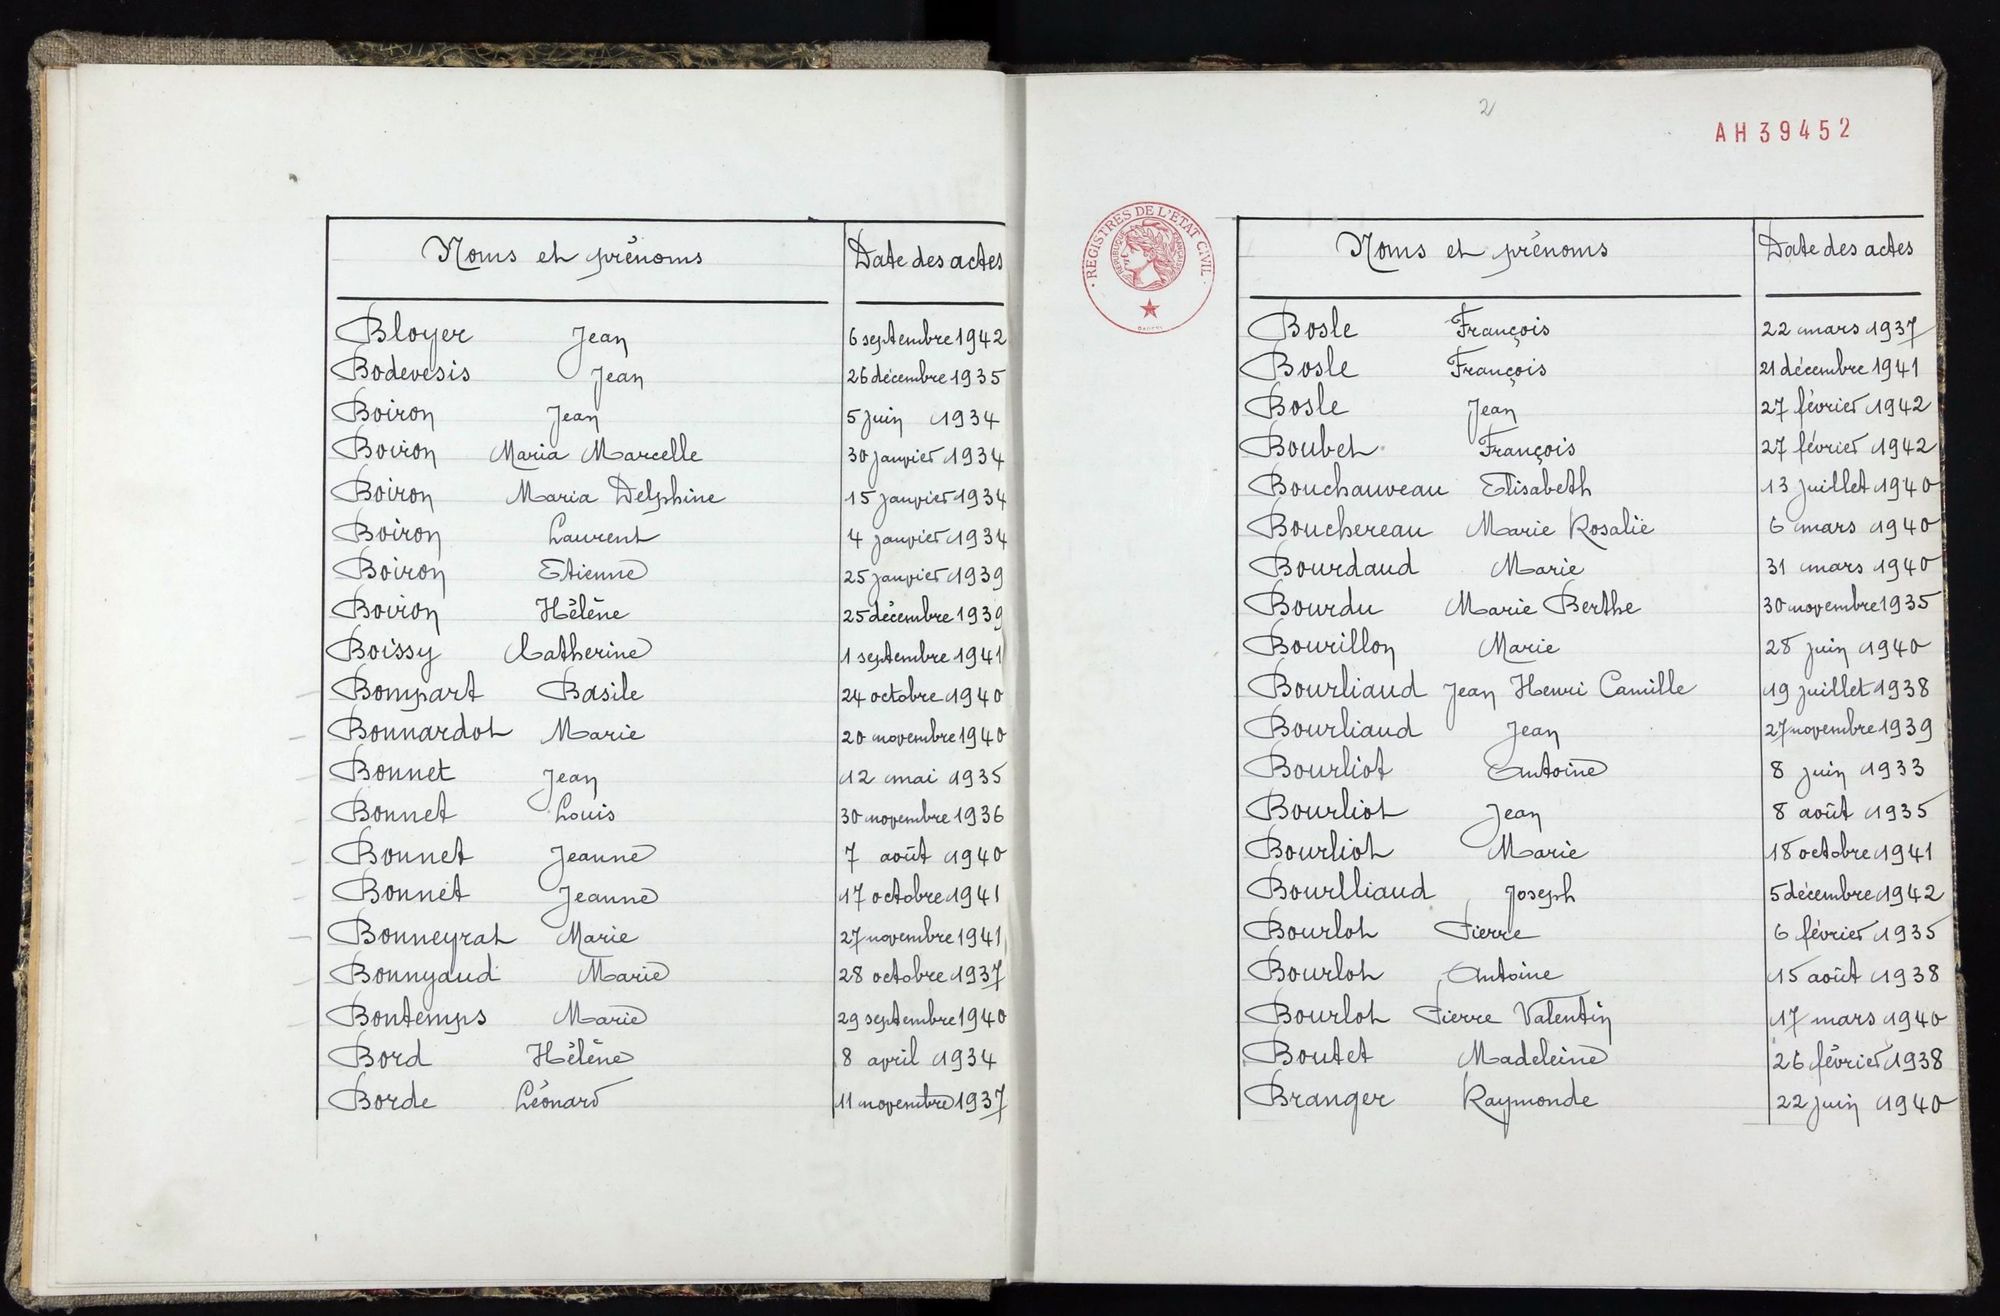 Noms et prénoms Date des actes
Bloyer Jean 6 septembre 1942
Bodevesis Jean 26 décembre 1935
Boiron Jean 5 juin 1934
Boiron Maria Marcelle 30 janvier 1934
Boiron Maria Delphine 15 janvier 1934
Boiron Laurent 4 janvier 1934
Boiron Etienne 25 janvier 1939
Boiron Hélène 25 décembre 1939
Boissy Catherine 1 septembre 1941
Bompart Basile 24 octobre 1940
Bonnardot Marie 20 novembre 1940
Bonnet Jean 12 mai 1935
Bonnet Louis 30 novembre 1936
Bonnet Jeanne 7 août 1940
Bonnet Jeanne 17 octobre 1941
Bonneyrat Marie 27 novembre 1941
Bonnyaud Marie 28 octobre 1937
Bontemps Marie 29 septembre 1940
Bord Hélène 8 avril 1934
Borde Léonard 11 novembre 1937
2
AH39452
REGISTRES DE L'ÉTAT CIVIL
RÉPUBLIQUE FRANÇAISE
Noms et prénoms Date des actes
Bosle François 22 mars 1937
Bosle François 21 décembre 1941
Bosle Jean 27 février 1942
Boubet François 27 février 1942
Bouchauveau Elisabeth 13 juillet 1940
Bouchereau Marie Rosalie 6 mars 1940
Bourdaud Marie 31 mars 1940
Bourdu Marie Berthe 30 novembre 1935
Bourillon Marie 28 juin 1940
Bourliaud Jean Henri Camille 19 juillet 1938
Bourliaud Jean 27 novembre 1939
Bourliot Antoine 8 juin 1933
Bourliot Jean 8 août 1935
Bourliot Marie 18 octobre 1941
Bourlliaud Joseph 5 décembre 1942
Bourlot Pierre 6 février 1935
Bourlot Antoine 15 août 1938
Bourlot Pierre Valentin 17 mars 1940
Boutet Madeleine 26 février 1938
Branger Raymonde 22 juin 1940